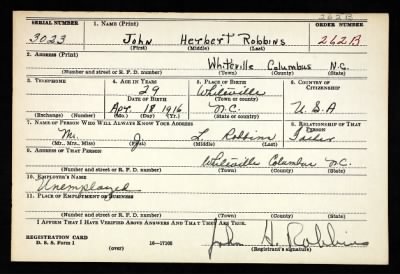 262B
SERIAL NUMBER 1. NAME (Print) ORDER NUMBER
3023 John Herbert Robbins 262B
(First) (Middle) (Last)
2. ADDRESS (Print)
Whiteville Columbus N.C.
(Number and street or R. F. D. number) (Town) (County) (State)
3. TELEPHONE 4. AGE IN YEARS 5. PLACE OF BIRTH 6. COUNTRY OF CITIZENSHIP
Whiteville
DATE OF BIRTH (Town or county)
Apr. 18 1916 N.C. U.S.A
(Exchange) (Number) (Mo.) (Day) (Yr.) (State or country)
7. NAME OF PERSON WHO WILL ALWAYS KNOW YOUR ADDRESS 8. RELATIONSHIP OF THAT PERSON
Mr. J L Robbins Father
(Mr., Mrs., Miss) (First) (Middle) (Last)
9. ADDRESS OF THAT PERSON
Whiteville Columbus N.C.
(Number and street or R. F. D. number) (Town) (County) (State)
10. EMPLOYER'S NAME
Unemployed
11. PLACE OF EMPLOYMENT OR BUSINESS
(Number and street or R. F. D. number) (Town) (County) (State)
I AFFIRM THAT I HAVE VERIFIED ABOVE ANSWERS AND THAT THEY ARE TRUE.
REGISTRATION CARD
D. S. S. Form 1 (over) 16—17105 John H. Robbins
(Registrant's signature)